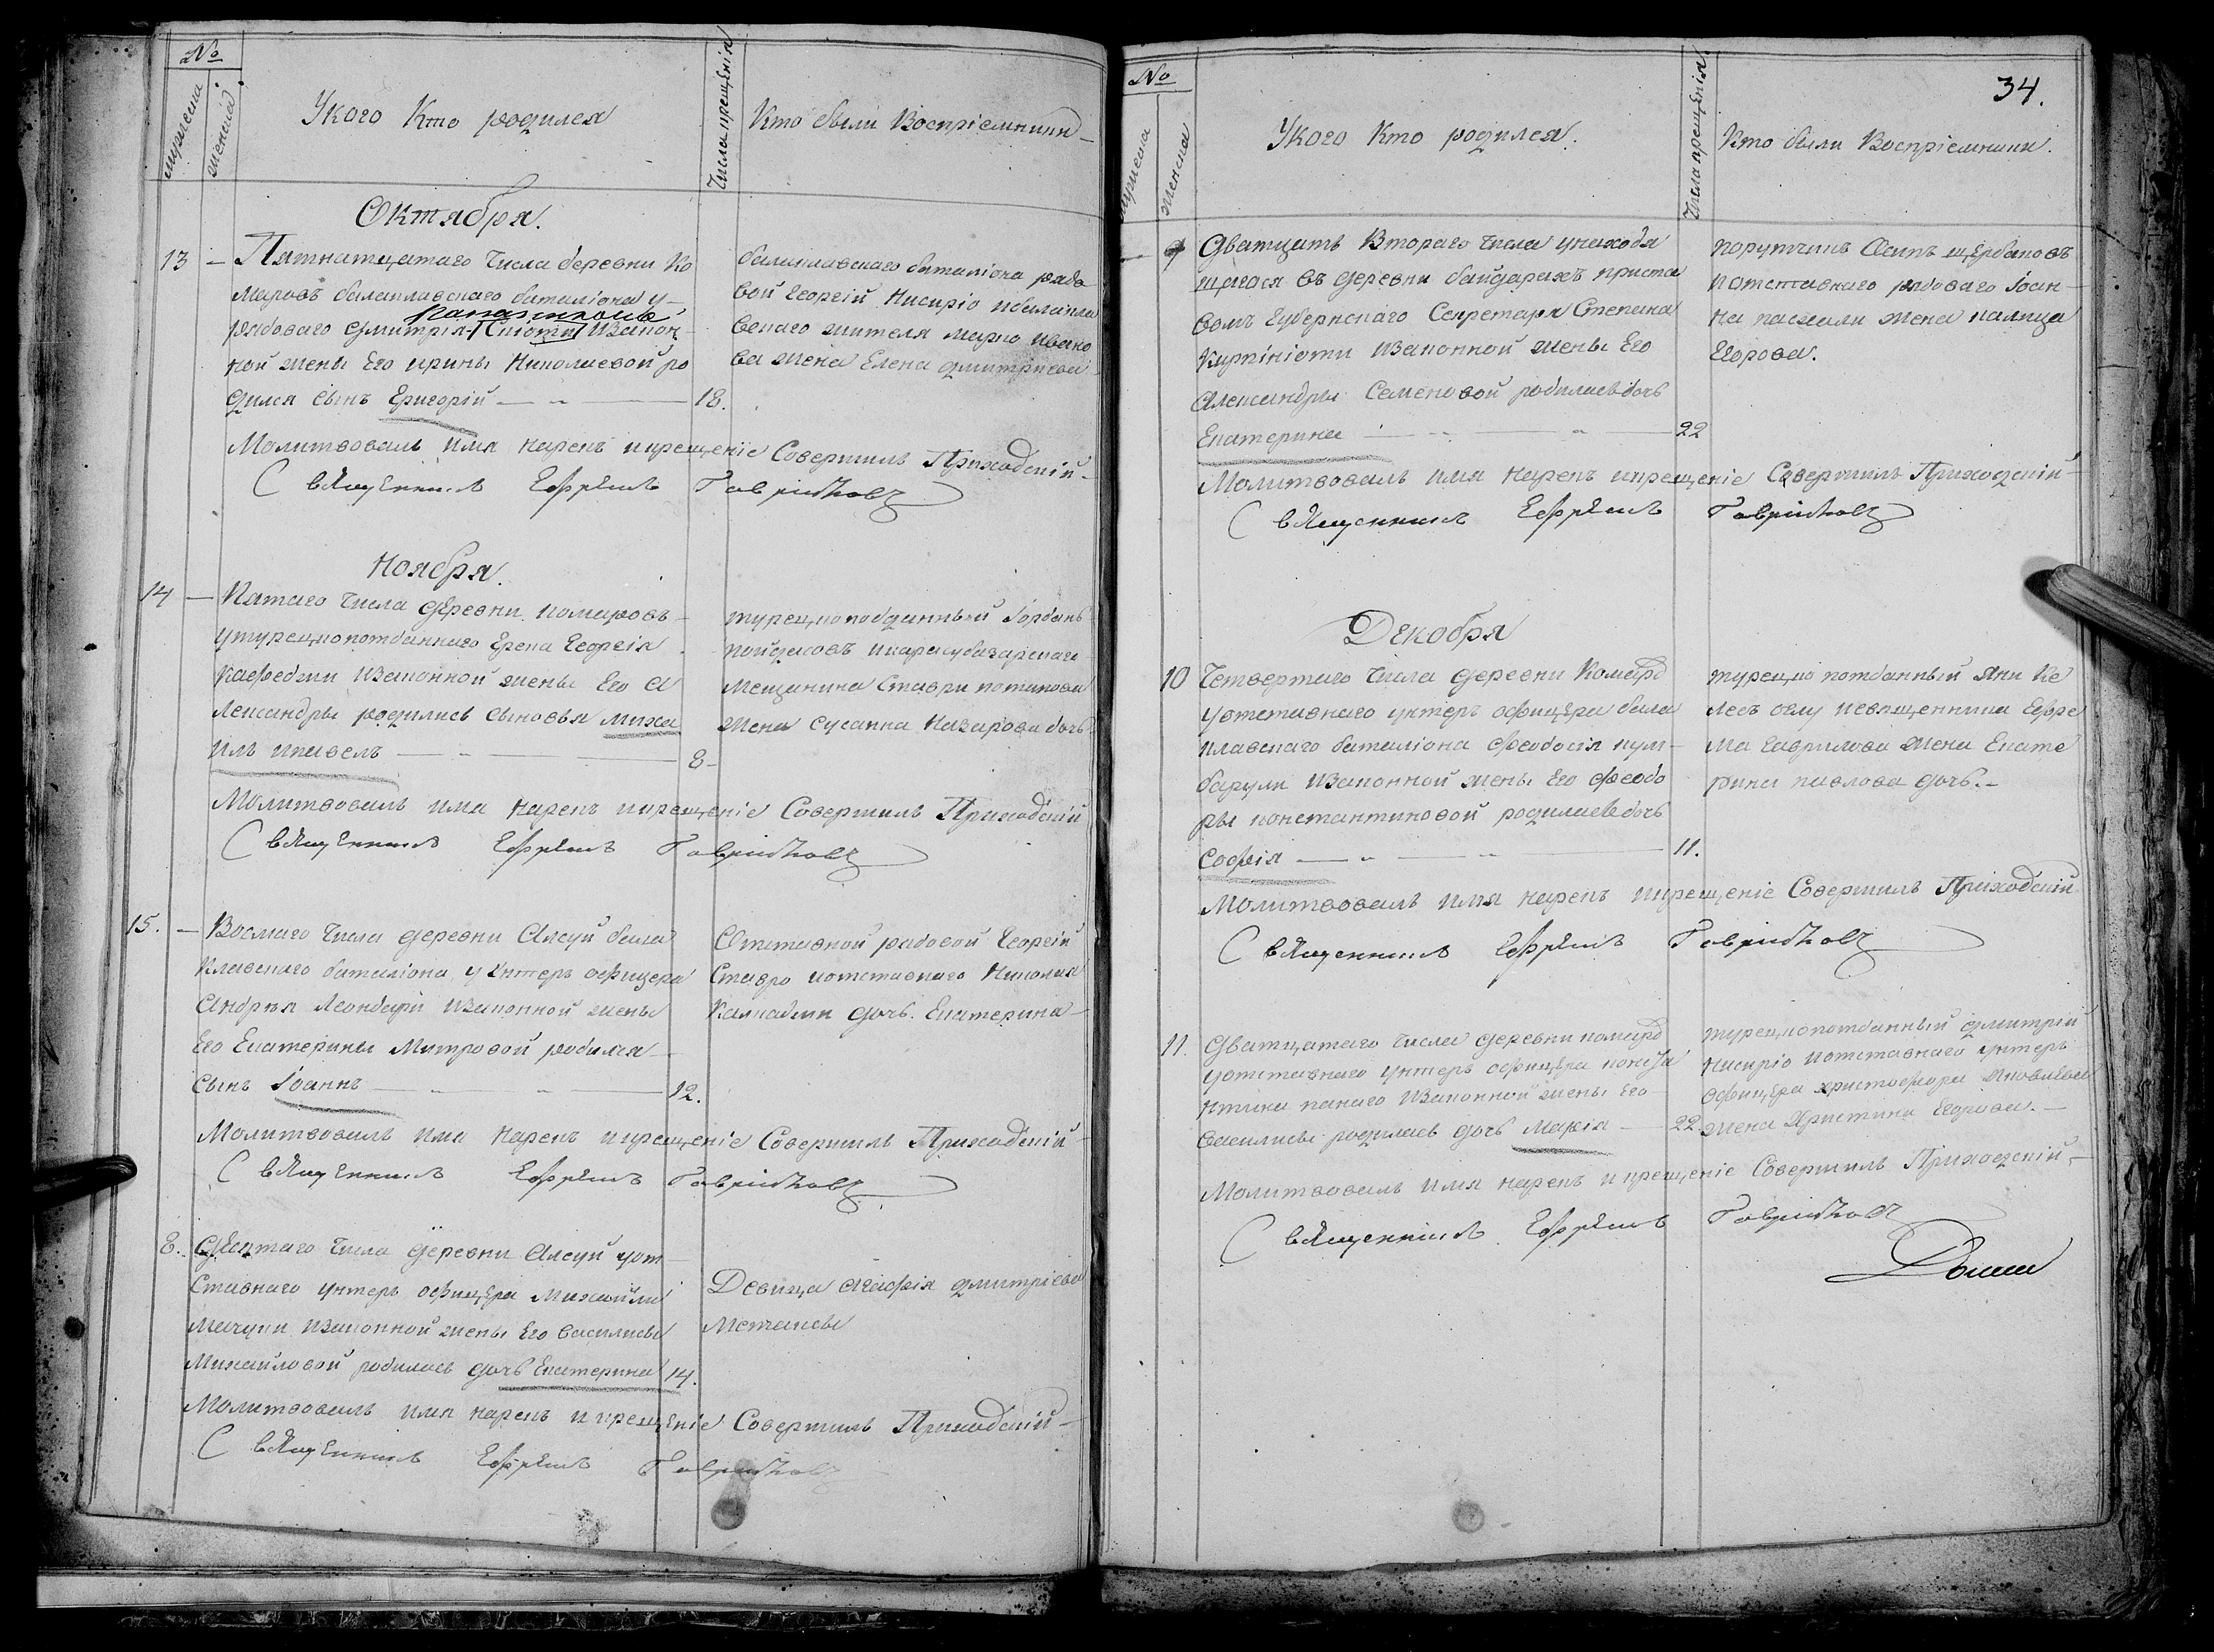 №
мужеска
женска
У кого Кто родился
Числа крещенія
Кто были Воспріемники
Октября.
13 — Пятнатцатаго Числа деревни Ко
маровъ балаклавскаго баталіона у
рядоваго Дмитрія Спіоти изакон
ной жены Его ирины Николаевой ро
дился сынъ Григорій — 18.
балаклавскаго баталіона рядо
вой Георгій Кисиріо ибалакла
вскаго жителя марко ивано
ва жена Елена дмитріева
Молитвовалъ имя нарекъ икрещеніе Совершилъ Приходскій
Священникъ Ефремъ Гавриловъ
Ноября.
14 — Пятаго Числа деревни комаровъ
утурецкоподданнаго Георгія
изаконной жены Его а
лександры родились сыновья миха
илъ ипавелъ — 8
турецкоподданный
икарасубазарскаго
мещанина Ставри
жена Сусанна Назарова дочь
Молитвовалъ имя нарекъ икрещеніе Совершилъ Приходскій
Священникъ Ефремъ Гавриловъ
15. — Восмаго Числа деревни Алсуй бала
клавскаго баталіона у Унтеръ офицера
Андрея Леондари изаконной жены
Его Екатерины Митровой родился
сынъ Іоаннъ — 12.
Отставной рядовой Георгій
Ставро иотставнаго Николая
дочь Екатерина
Молитвовалъ имя нарекъ икрещеніе Совершилъ Приходскій
Священникъ Ефремъ Гавриловъ
8. Десятаго Числа деревни Алсуй уот
ставнаго унтеръ офицера Михаила
изаконной жены Его василисы
Михайловой родилась дочь Екатерина 14.
Девица Агафія дмитріева
Молитвовалъ имя нарекъ икрещеніе Совершилъ Приходскій
Священникъ Ефремъ Гавриловъ
34.
№
мужеска
женска
У кого Кто родился.
Числа крещенія
Кто были Воспріемники.
— 9 Дватцать Втораго Числа унаходя
щагося въ деревни байдарахъ приста
вомъ Губернскаго Секретаря Степана
изаконной жены Его
Александры Семеновой родилась дочь
Екатерина — 22
порутчикъ Осипъ щербаковъ
иотставнаго рядоваго Іоан
на жена
Егорова.
Молитвовалъ имя нарекъ икрещеніе Совершилъ Приходскій
Священникъ Ефремъ Гавриловъ
Декобря
10 Четвертаго Числа деревни Комаръ
уотставнаго унтеръ офицера бала
клавскаго баталіона Феодосія кум
барули изаконной жены Его Феодо
ры константиновой родилась дочь
Софія — 11.
турецко подданный Яни Ке
лесъ оглу исвященника Ефре
ма гаврилова жена Екате
рина павлова дочь.
Молитвовалъ имя нарекъ икрещеніе Совершилъ Приходскій
Священникъ Ефремъ Гавриловъ
11. Дватцатаго Числа деревни комаръ
уотставнаго унтеръ офицера
изаконной жены Его
василисы родилась дочь Марія — 22
турецкоподданный дмитрій
Кисиріо иотставнаго унтеръ
офицера христофора
жена Христина Егорова.
Молитвовалъ имя нарекъ икрещеніе Совершилъ Приходскій
Священникъ Ефремъ Гавриловъ